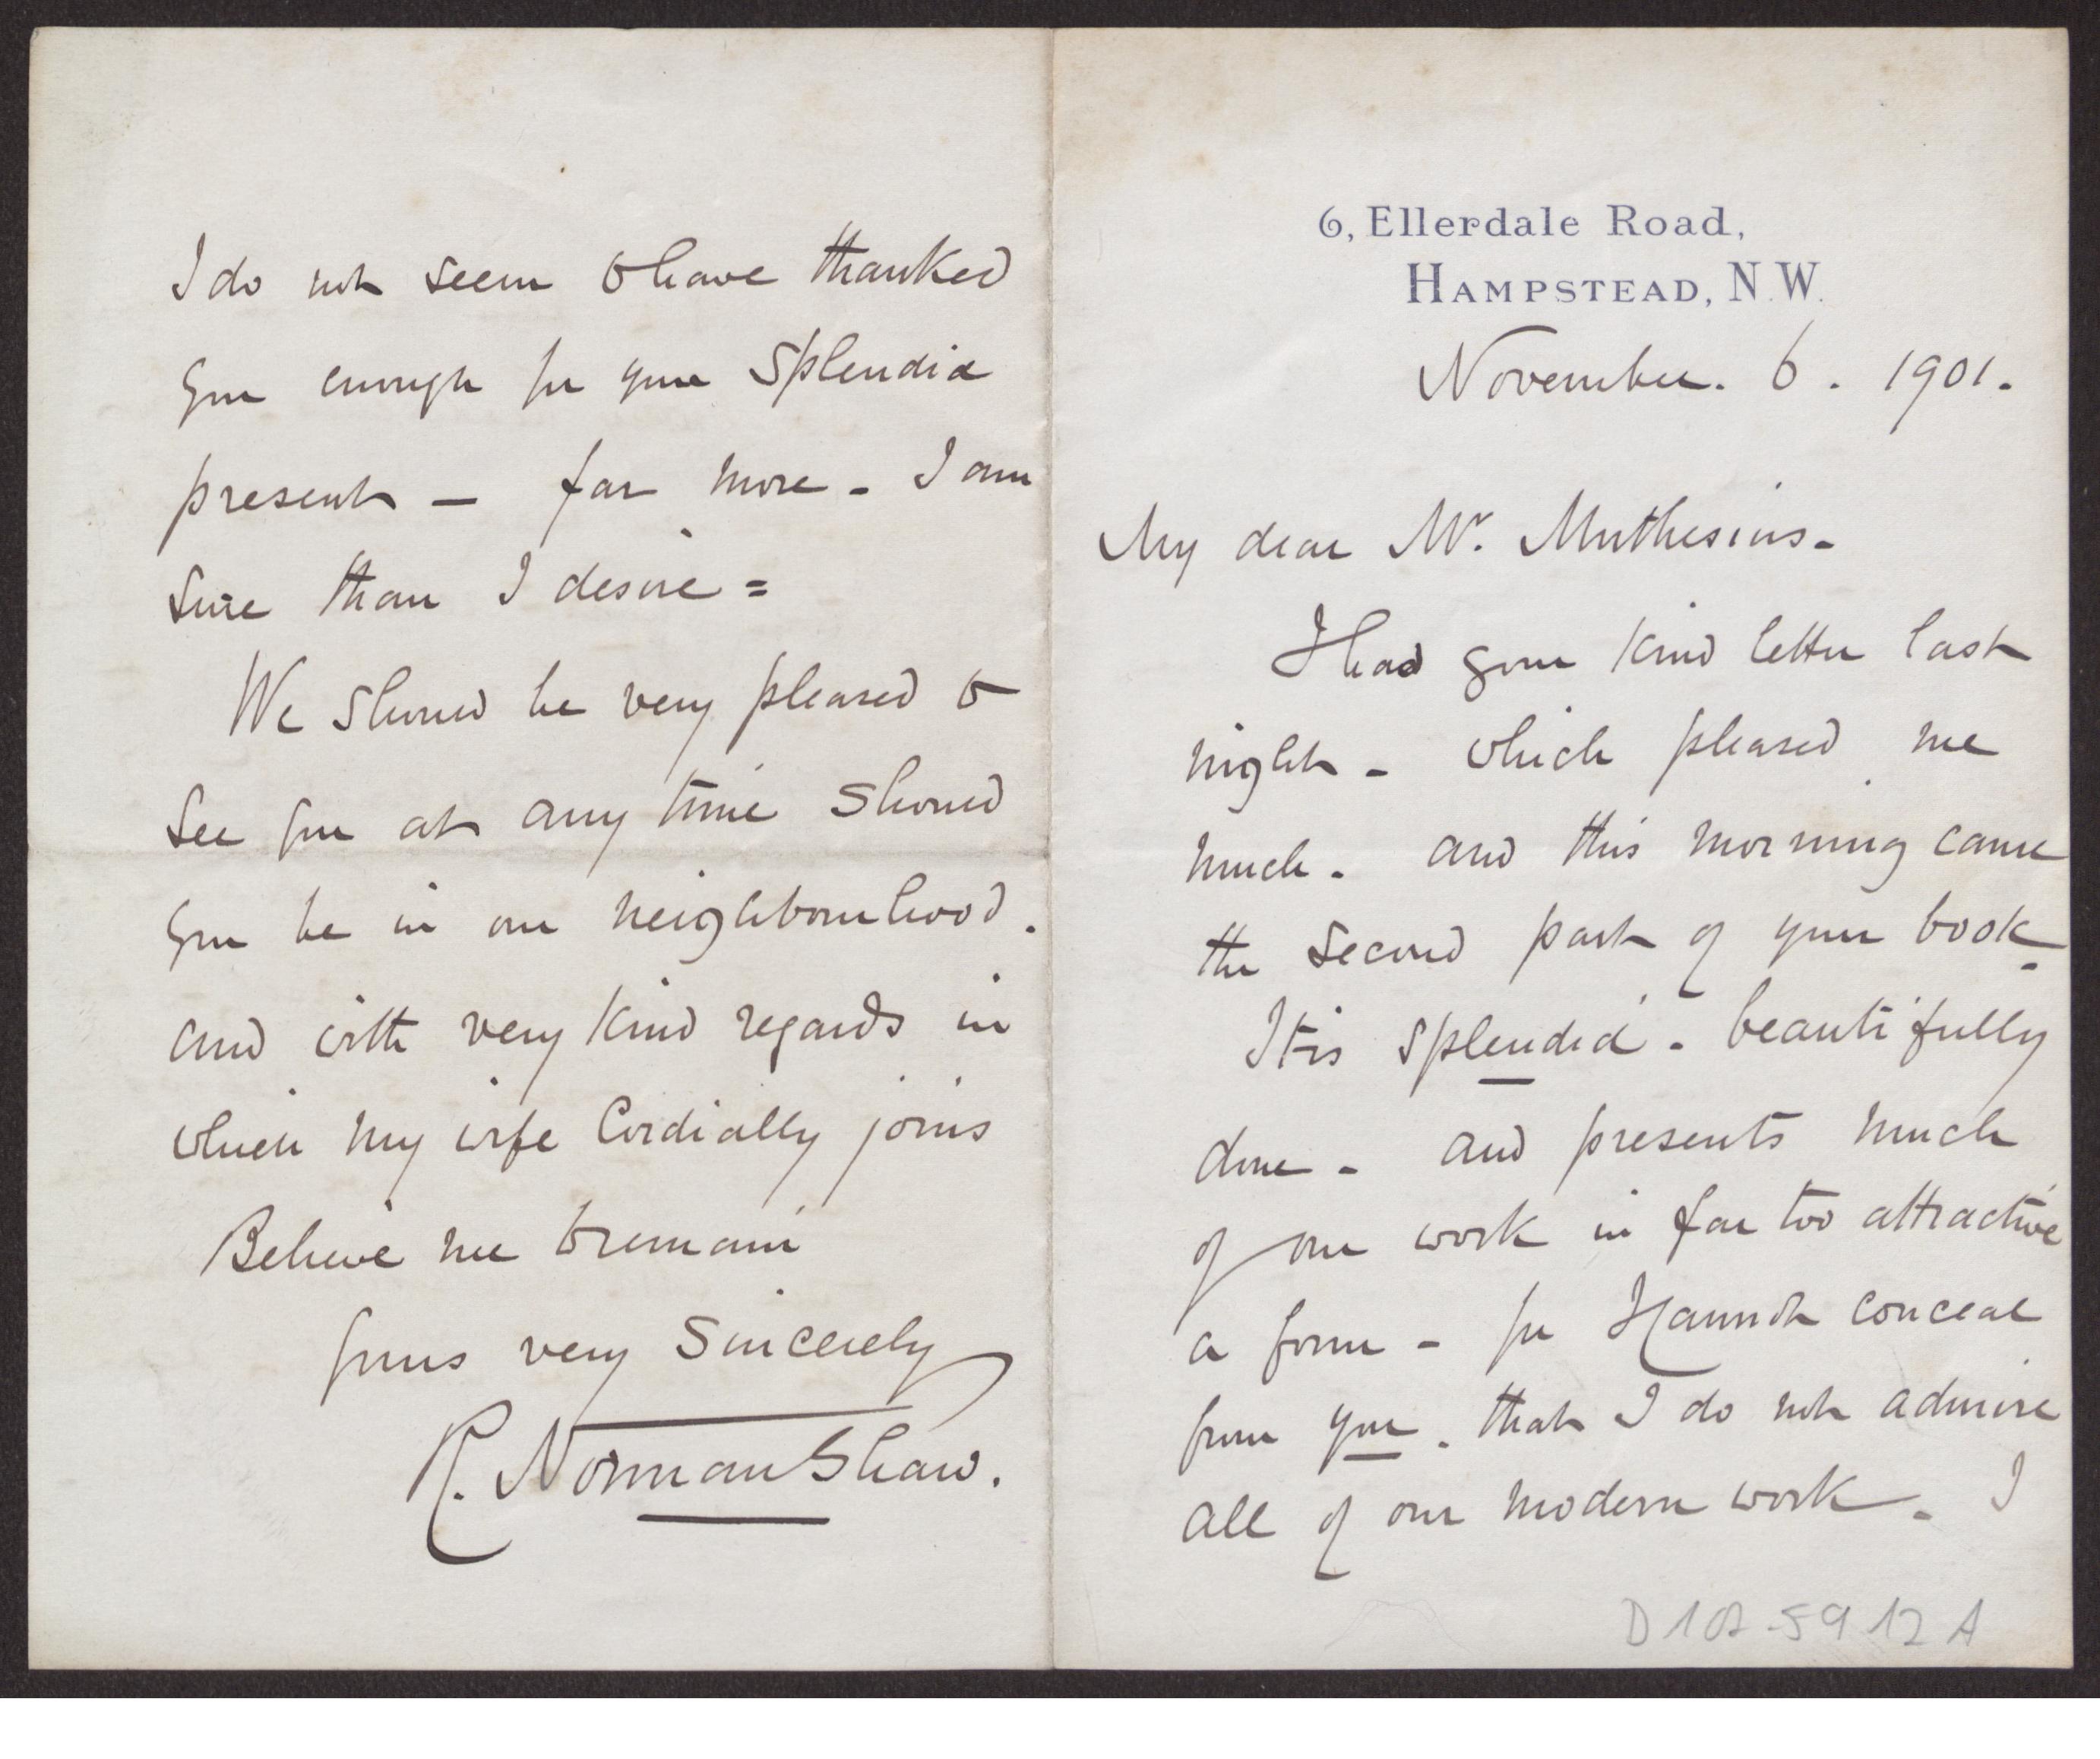 6, Ellerdale Road,
HAMPSTEAD, N.W.
November. 6. 1901.
My dear Mr. Muthesius-
I had your kind letter last
night - which pleased me
much. and this morning came
the second part of your book-
It is splendid - beautifully
done - and presents much
of our work in far too attractive
a form - for I cannot conceal
from you. that I do not admire
all of our modern work. I
D102-5912A
I do not seem to have thanked
you enough for your splendid
present - far more - I am
sure than I desire =
We should be very pleased to
see you at any time should
you be in our neighbourhood.
and with very kind regards in
which my wife cordially joins
Believe me to remain
yours very sincerely
R. Norman Shaw.